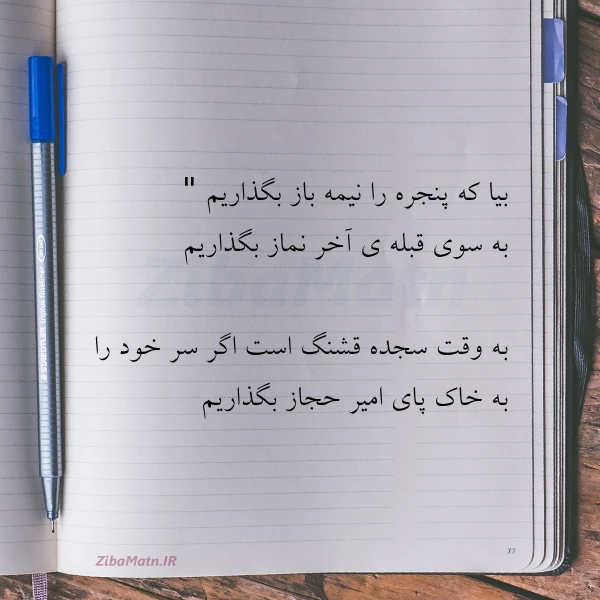 بیا که پنجره را نیمه باز بگذاریم "
به سوی قبله ی آخر نماز بگذاریم
به وقت سجده قشنگ است اگر سر خود را
به خاک پای امیر حجاز بگذاریم
ZibaMatn
77
ZibaMatn.IR